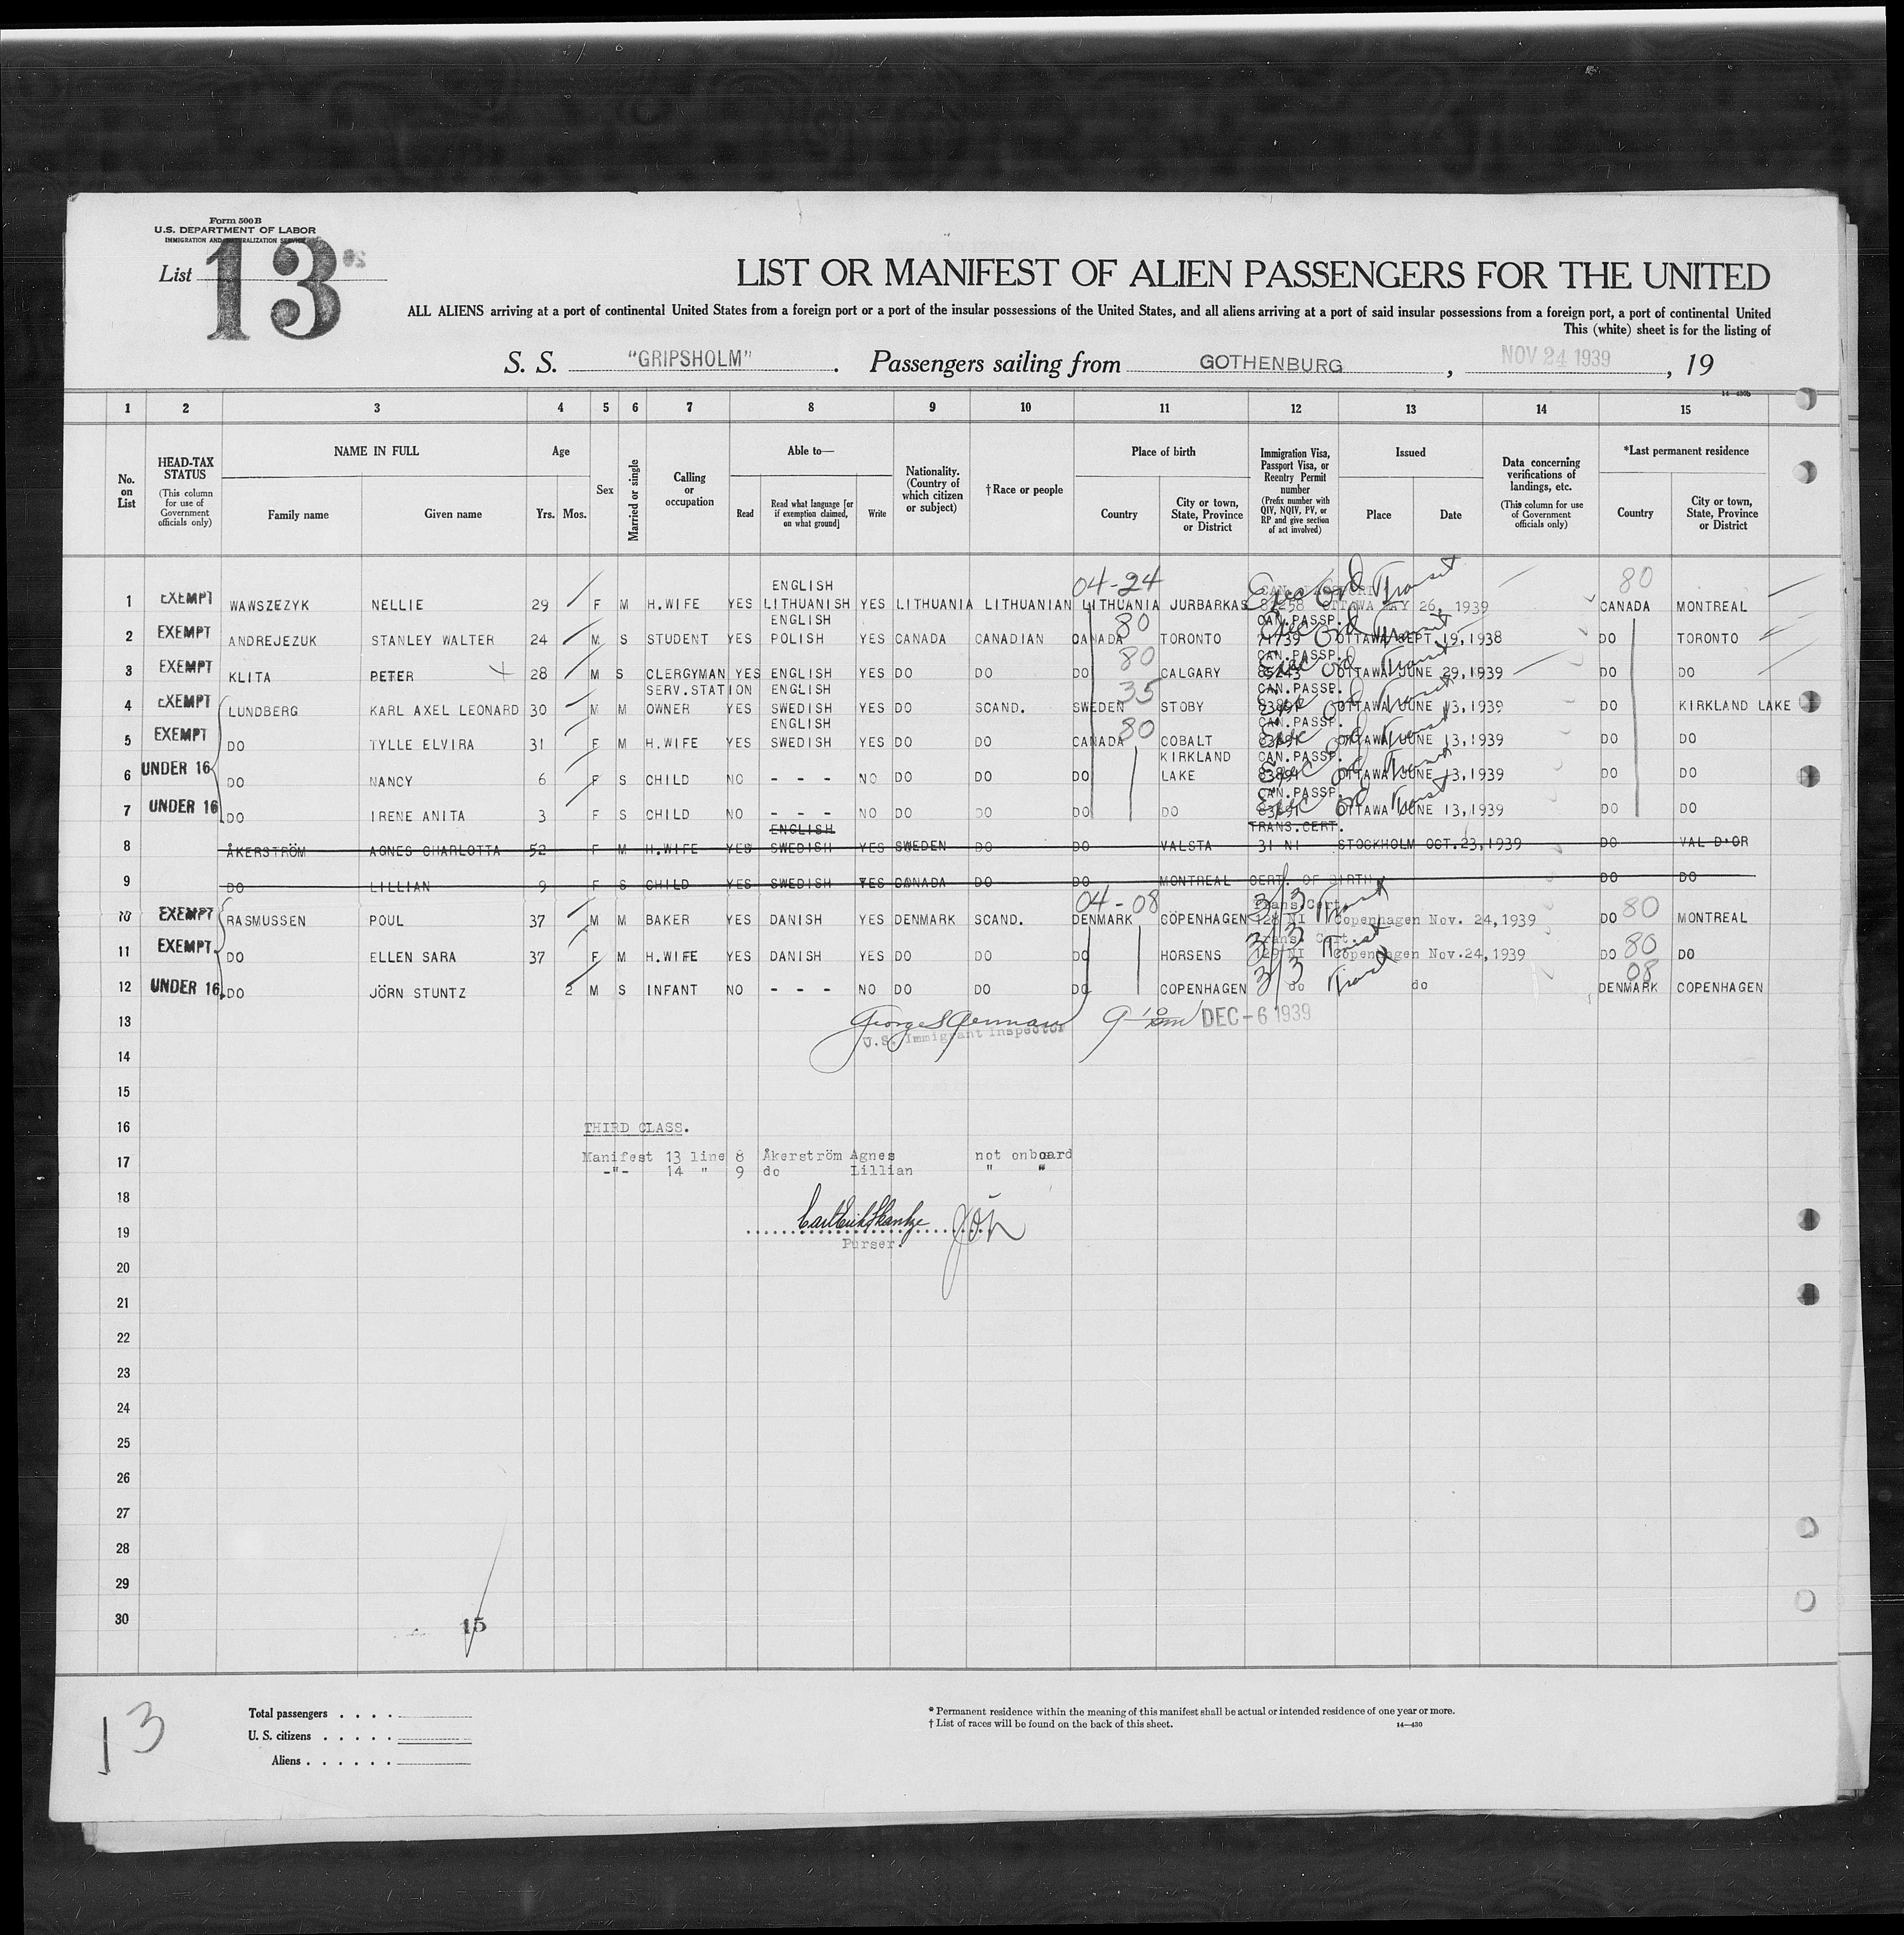 Form 500 B
U.S. DEPARTMENT OF LABOR
IMMIGRATION AND NATURALIZATION SERVICE
List 13
LIST OR MANIFEST OF ALIEN PASSENGERS FOR THE UNITED
ALL ALIENS arriving at a port of continental United States from a foreign port or a port of the insular possessions of the United States, and all aliens arriving at a port of said insular possessions from a foreign port, a port of continental United
This (white) sheet is for the listing of
S. S. "GRIPSHOLM". Passengers sailing from GOTHENBURG, NOV 24 1939, 19
1 2 3 4 5 6 7 8 9 10 11 12 13 14 15
No. on List
HEAD-TAX STATUS
(This column for use of Government officials only)
NAME IN FULL
Family name Given name
Age
Yrs. Mos.
Sex
Married or single
Calling or occupation
Able to—
Read
Read what language [or if exemption claimed, on what ground]
Write
Nationality. (Country of which citizen or subject)
†Race or people
Place of birth
Country
City or town, State, Province or District
Immigration Visa, Passport Visa, or Reentry Permit number
(Prefix number with QIV, NQIV, PV, or RP and give section of act involved)
Issued
Place Date
Data concerning verifications of landings, etc.
(This column for use of Government officials only)
*Last permanent residence
Country
City or town, State, Province or District
ENGLISH 04-24 Exec ord Transit 80
1 EXEMPT WAWSZEZYK NELLIE 29 F M H.WIFE YES LITHUANISH YES LITHUANIA LITHUANIAN LITHUANIA JURBARKAS OTTAWA MAY 26, 1939 CANADA MONTREAL
ENGLISH 80 CAN.PASSP. Exec ord Transit
2 EXEMPT ANDREJEZUK STANLEY WALTER 24 M S STUDENT YES POLISH YES CANADA CANADIAN CANADA TORONTO 71739 OTTAWA SEPT.19,1938 DO TORONTO
80 CAN.PASSP. Exec ord Transit
3 EXEMPT KLITA PETER 28 M S CLERGYMAN YES ENGLISH YES DO DO DO CALGARY 85243 OTTAWA JUNE 29,1939 DO DO
SERV.STATION ENGLISH 35 CAN.PASSP. Exec ord Transit
4 EXEMPT LUNDBERG KARL AXEL LEONARD 30 M M OWNER YES SWEDISH YES DO SCAND. SWEDEN STOBY 83891 OTTAWA JUNE 13,1939 DO KIRKLAND LAKE
ENGLISH 80 CAN.PASSP. Exec ord Transit
5 EXEMPT DO TYLLE ELVIRA 31 F M H.WIFE YES SWEDISH YES DO DO CANADA COBALT 83891 OTTAWA JUNE 13,1939 DO DO
KIRKLAND CAN.PASSP. Exec ord Transit
6 UNDER 16 DO NANCY 6 F S CHILD NO - - - NO DO DO DO LAKE 83891 OTTAWA JUNE 13,1939 DO DO
CAN.PASSP. Exec ord Transit
7 UNDER 16 DO IRENE ANITA 3 F S CHILD NO - - - NO DO DO DO DO 83891 OTTAWA JUNE 13,1939 DO DO
ENGLISH TRANS.CERT.
8 ÅKERSTRÖM AGNES CHARLOTTA 52 F M H.WIFE YES SWEDISH YES SWEDEN DO DO VALSTA 31 NI STOCKHOLM OCT.23,1939 DO VAL D'OR
9 DO LILLIAN 9 F S CHILD YES SWEDISH YES CANADA DO DO MONTREAL CERT. OF BIRTH DO DO
04-08 Trans.Cert. 3/3 Transit
10 EXEMPT RASMUSSEN POUL 37 M M BAKER YES DANISH YES DENMARK SCAND. DENMARK COPENHAGEN 128 NI Copenhagen Nov. 24,1939 DO 80 MONTREAL
Trans. Cert. 3/3 Transit
11 EXEMPT DO ELLEN SARA 37 F M H.WIFE YES DANISH YES DO DO DO HORSENS 129 NI Copenhagen Nov.24,1939 DO 80 DO
3/3 Transit 08
12 UNDER 16 DO JÖRN STUNTZ 2 M S INFANT NO - - - NO DO DO DO COPENHAGEN do do DENMARK COPENHAGEN
13 DEC - 6 1939
U.S. Immigrant Inspector
14
15
16 THIRD CLASS.
17 Manifest 13 line 8 Åkerström Agnes not onboard
-"- 14 " 9 do Lillian " "
18
19
Purser.
20
21
22
23
24
25
26
27
28
29
30
15
13
Total passengers . . . .
U. S. citizens . . . . .
Aliens . . . . . .
* Permanent residence within the meaning of this manifest shall be actual or intended residence of one year or more.
† List of races will be found on the back of this sheet.
14—430